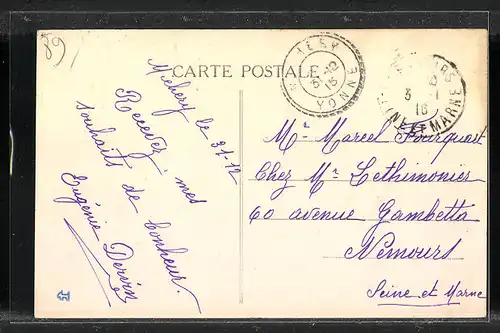 89)
CARTE POSTALE
Michery le 31-12
Recevez, mes
souhaits de bonheur.
Eugénie Dervin
YONNE
31-12
15
3 1
16
SEINE ET MARNE
Mr Marcel Fourquast
Chez Mr Lethimonier
60 avenue Gambetta
Nemours
Seine et Marne